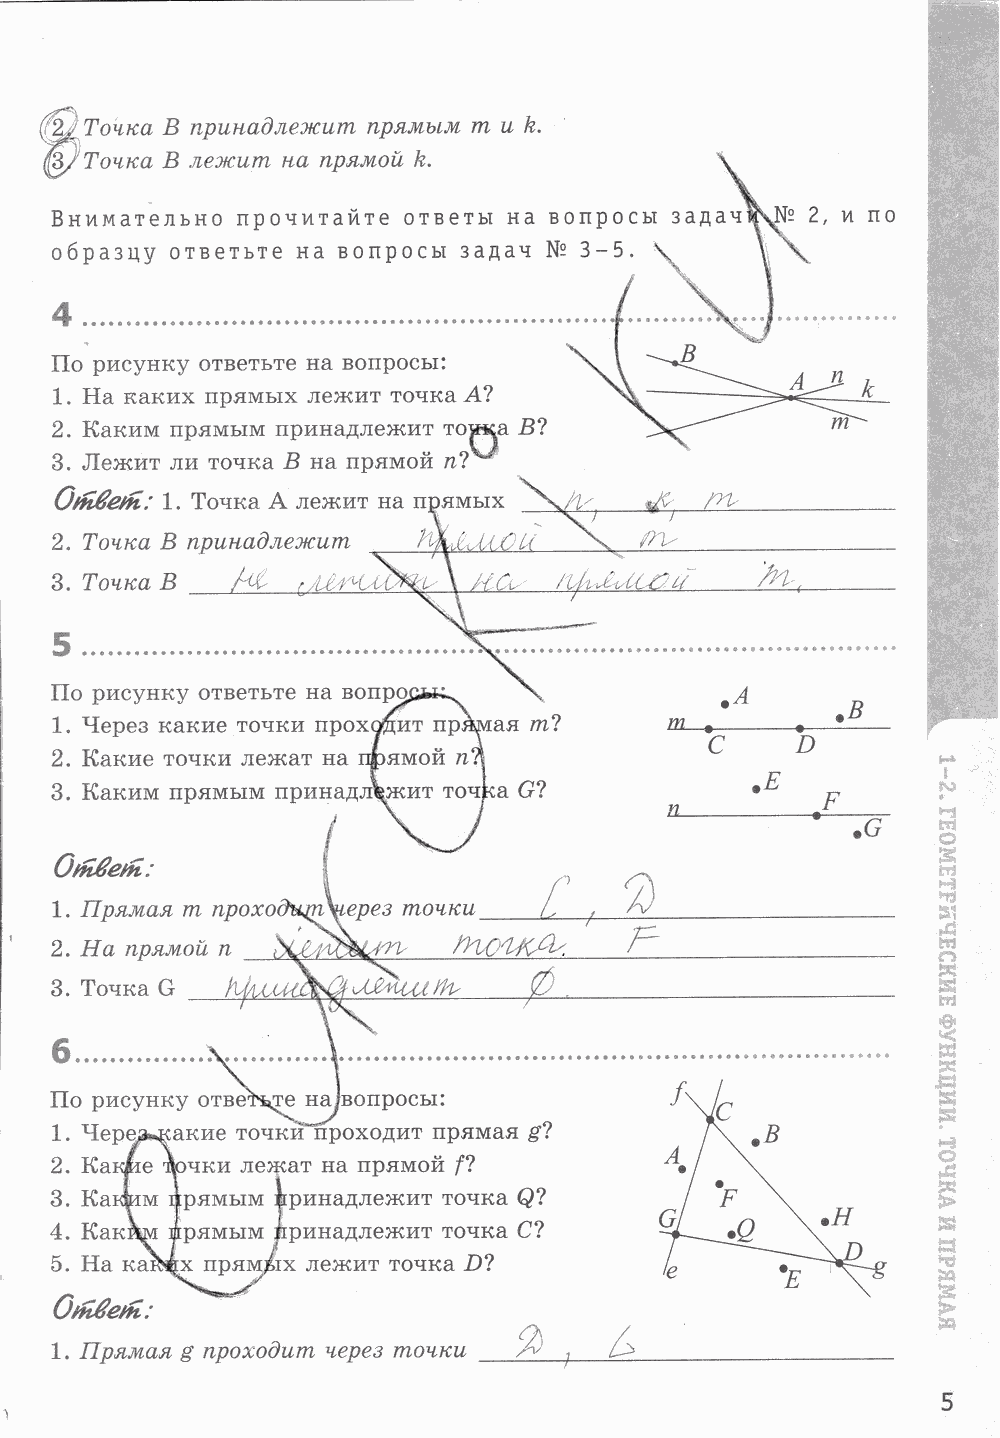 2. Точка B принадлежит прямым m и k.
3. Точка B лежит на прямой k.
Внимательно прочитайте ответы на вопросы задачи № 2, и по
образцу ответьте на вопросы задач № 3–5.
4
По рисунку ответьте на вопросы:
1. На каких прямых лежит точка A?
2. Каким прямым принадлежит точка B?
3. Лежит ли точка B на прямой n?
B
A
n
k
m
Ответ: 1. Точка А лежит на прямых n, к, m
2. Точка B принадлежит прямой m
3. Точка B не лежит на прямой m.
5
По рисунку ответьте на вопросы:
1. Через какие точки проходит прямая m?
2. Какие точки лежат на прямой n?
3. Каким прямым принадлежит точка G?
A
m
B
C
D
E
n
F
G
Ответ:
1. Прямая m проходит через точки C, D
2. На прямой n лежит точка. F
3. Точка G принадлежит Ø.
6
По рисунку ответьте на вопросы:
1. Через какие точки проходит прямая g?
2. Какие точки лежат на прямой f?
3. Каким прямым принадлежит точка Q?
4. Каким прямым принадлежит точка C?
5. На каких прямых лежит точка D?
f
C
B
A
F
G
Q
H
D
e
E
g
Ответ:
1. Прямая g проходит через точки D, G
1–2. ГЕОМЕТРИЧЕСКИЕ ФУНКЦИИ. ТОЧКА И ПРЯМАЯ
5